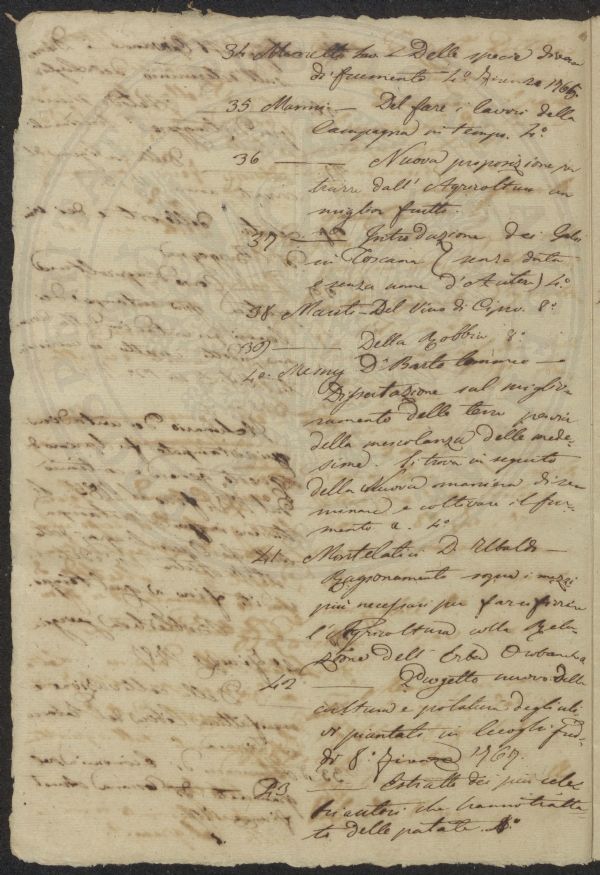 34 Manetti Delle specie diverse
di frumento 4.º Firenze 1765.
35 Manni — Del fare i lavori della
Campagna in tempo. 4.º
36 — Nuova proposizione per
trarre dall' Agricoltura un
miglior frutto.
37 — Introduzione dei Gelsi
in Toscana (senza data
e senza nome d'Autore) 4.º
38. Mariti — Del Vino di Cipro. 8.º
39) — Della Robbia 8.º
40. Mesny D. Bartolommeo —
Dissertazione sul miglio-
ramento delle terre per via
della mescolanza delle mede-
sime. Si trova in seguito
della Nuova maniera di se-
minare e coltivare il fru-
mento 4.º
41. Montelatici D. Ubaldo —
Ragionamento sopra i mezzi
più necessari per far rifiorire
l'Agricoltura colla Rela-
zione dell' Erba Orobanche
42 — Progetto nuovo della
cultura e potatura degli uli-
vi piantati in luoghi fred-
di 8.º Firenze 1767.
43 — Estratto dei più cele-
bri autori che hanno tratta-
to delle patate. 8.º